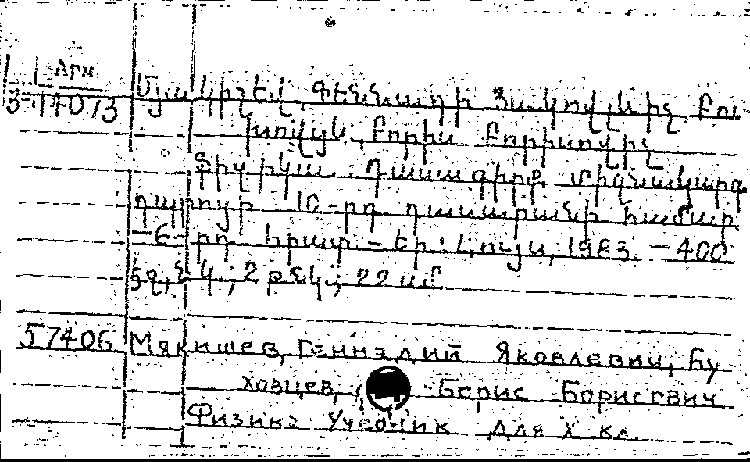 Արխ
3-14073 Մյակիշև, Գեննադի Յակովլևիչ, Բու
խովցև, Բորիս Բորիսովիչ
Ֆիզիկա: Դասագիրք միջնակարգ
դպրոցի 10-րդ դասարանի համար.
-6-րդ հրատ.- Եր.: Լույս, 1983. -400
էջ, նկ.; 2 թ.նկ.; 22 սմ
57406 Мякишев, Геннадий Яковлевич, Бу
ховцев, Борис Борисович
Физика Учебник для X кл.